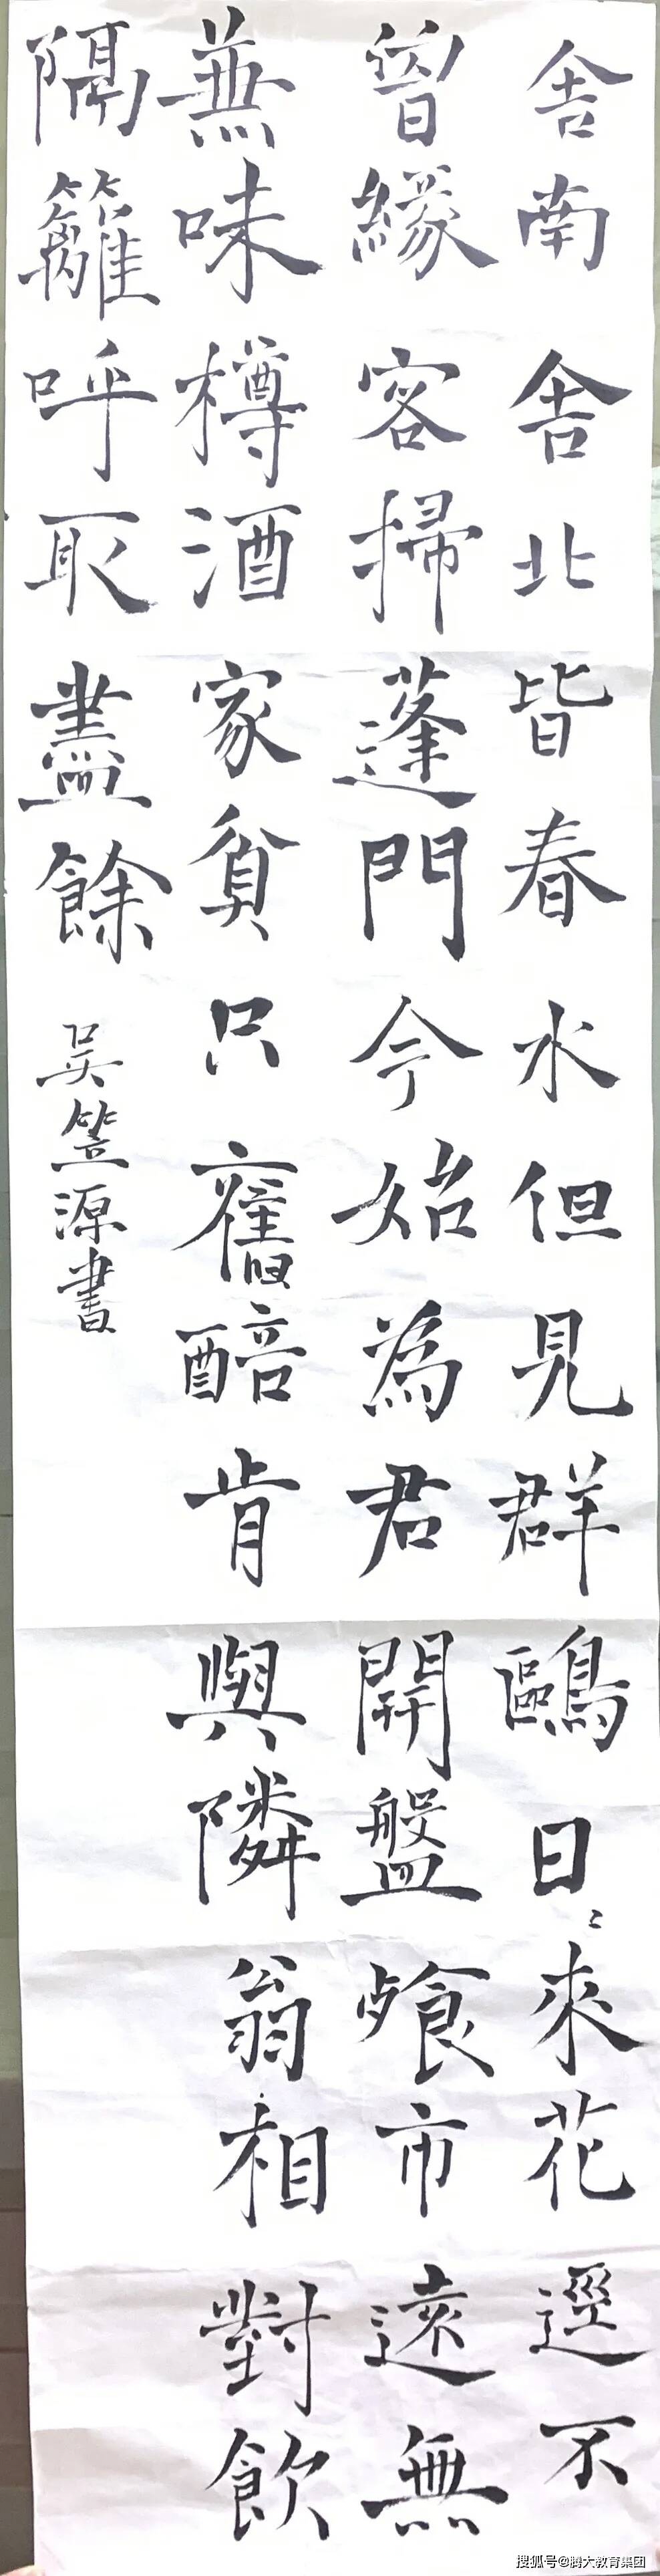 舍南舍北皆春水但見群鷗日〻來花逕不
曾緣客掃蓬門今始為君開盤飱市遠無
兼味樽酒家貧只舊醅肯與隣翁相對飲
隔籬呼取盡餘
吳笠源書
搜狐号@腾大教育集团